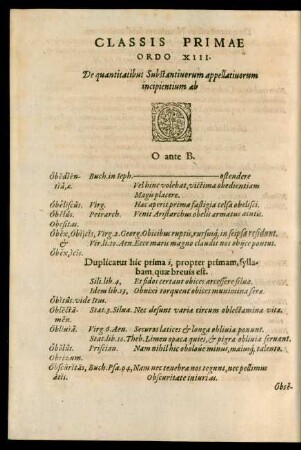 CLASSIS PRIMAE
ORDO XIII.
De quantitatibus Substantiuorum appellatiuorum
incipientium ab
O
O ante B.
Obĕdĭen- Buch. in Ieph. ostendere
tĭă,æ. Vel hinc volebat, victima obedientiam
Magis placere.
Obĕlĭscŭs. Virg. Hac aperit prima fastigia celsa obelisci.
Obĕlŭs. Petrarch. Venit Aristarchus obelis armatus acutis.
Obesitas.
Obĕx, Obĭcis, Virg. 2. Georg. Obicibus ruptis, rursusq; in seipsa residunt.
& Vir. li. 10. Aen. Ecce maris magno claudit nos obijce pontus.
Obĕx, ĭcis.
Duplicatur hic prima i, propter primam, sylla-
bam, quæ breuis est.
Sili. lib. 4, Et fidos certant obices arcessere silua.
Idem lib. 13, Obnixi torquent obices munimina sera.
Obĭtŭs. vide Itus.
Oblĕctă- Stat. 3. Silua. Nec desunt varia circum oblectamina vitæ.
mĕn.
Oblĭuĭă. Virg. 6. Aen. Securos latices & longa obliuia potant.
Stat. lib. 10. Theb. Limen opaca quies, & pigra obliuia seruant.
Obŏlŭs. Priscian. Nam nihil hic obolóue minus, maiusq; talento.
Obrizum.
Obscūrĭtās, Buch. Psa. 94, Nam nec tenebra nos tegunt, nec pellimus
ātis. Obscuritate iniurias.
Obsĕ-